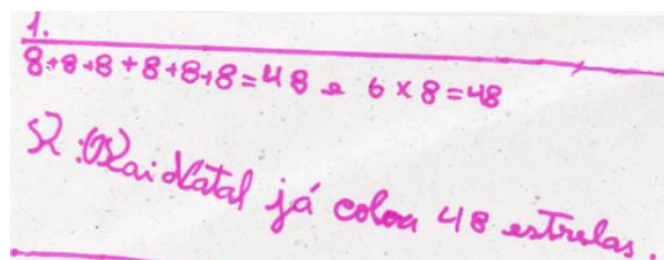 1.
8+8+8+8+8+8=48 e 6×8=48
R:O Pai Natal já colou 48 estrelas.